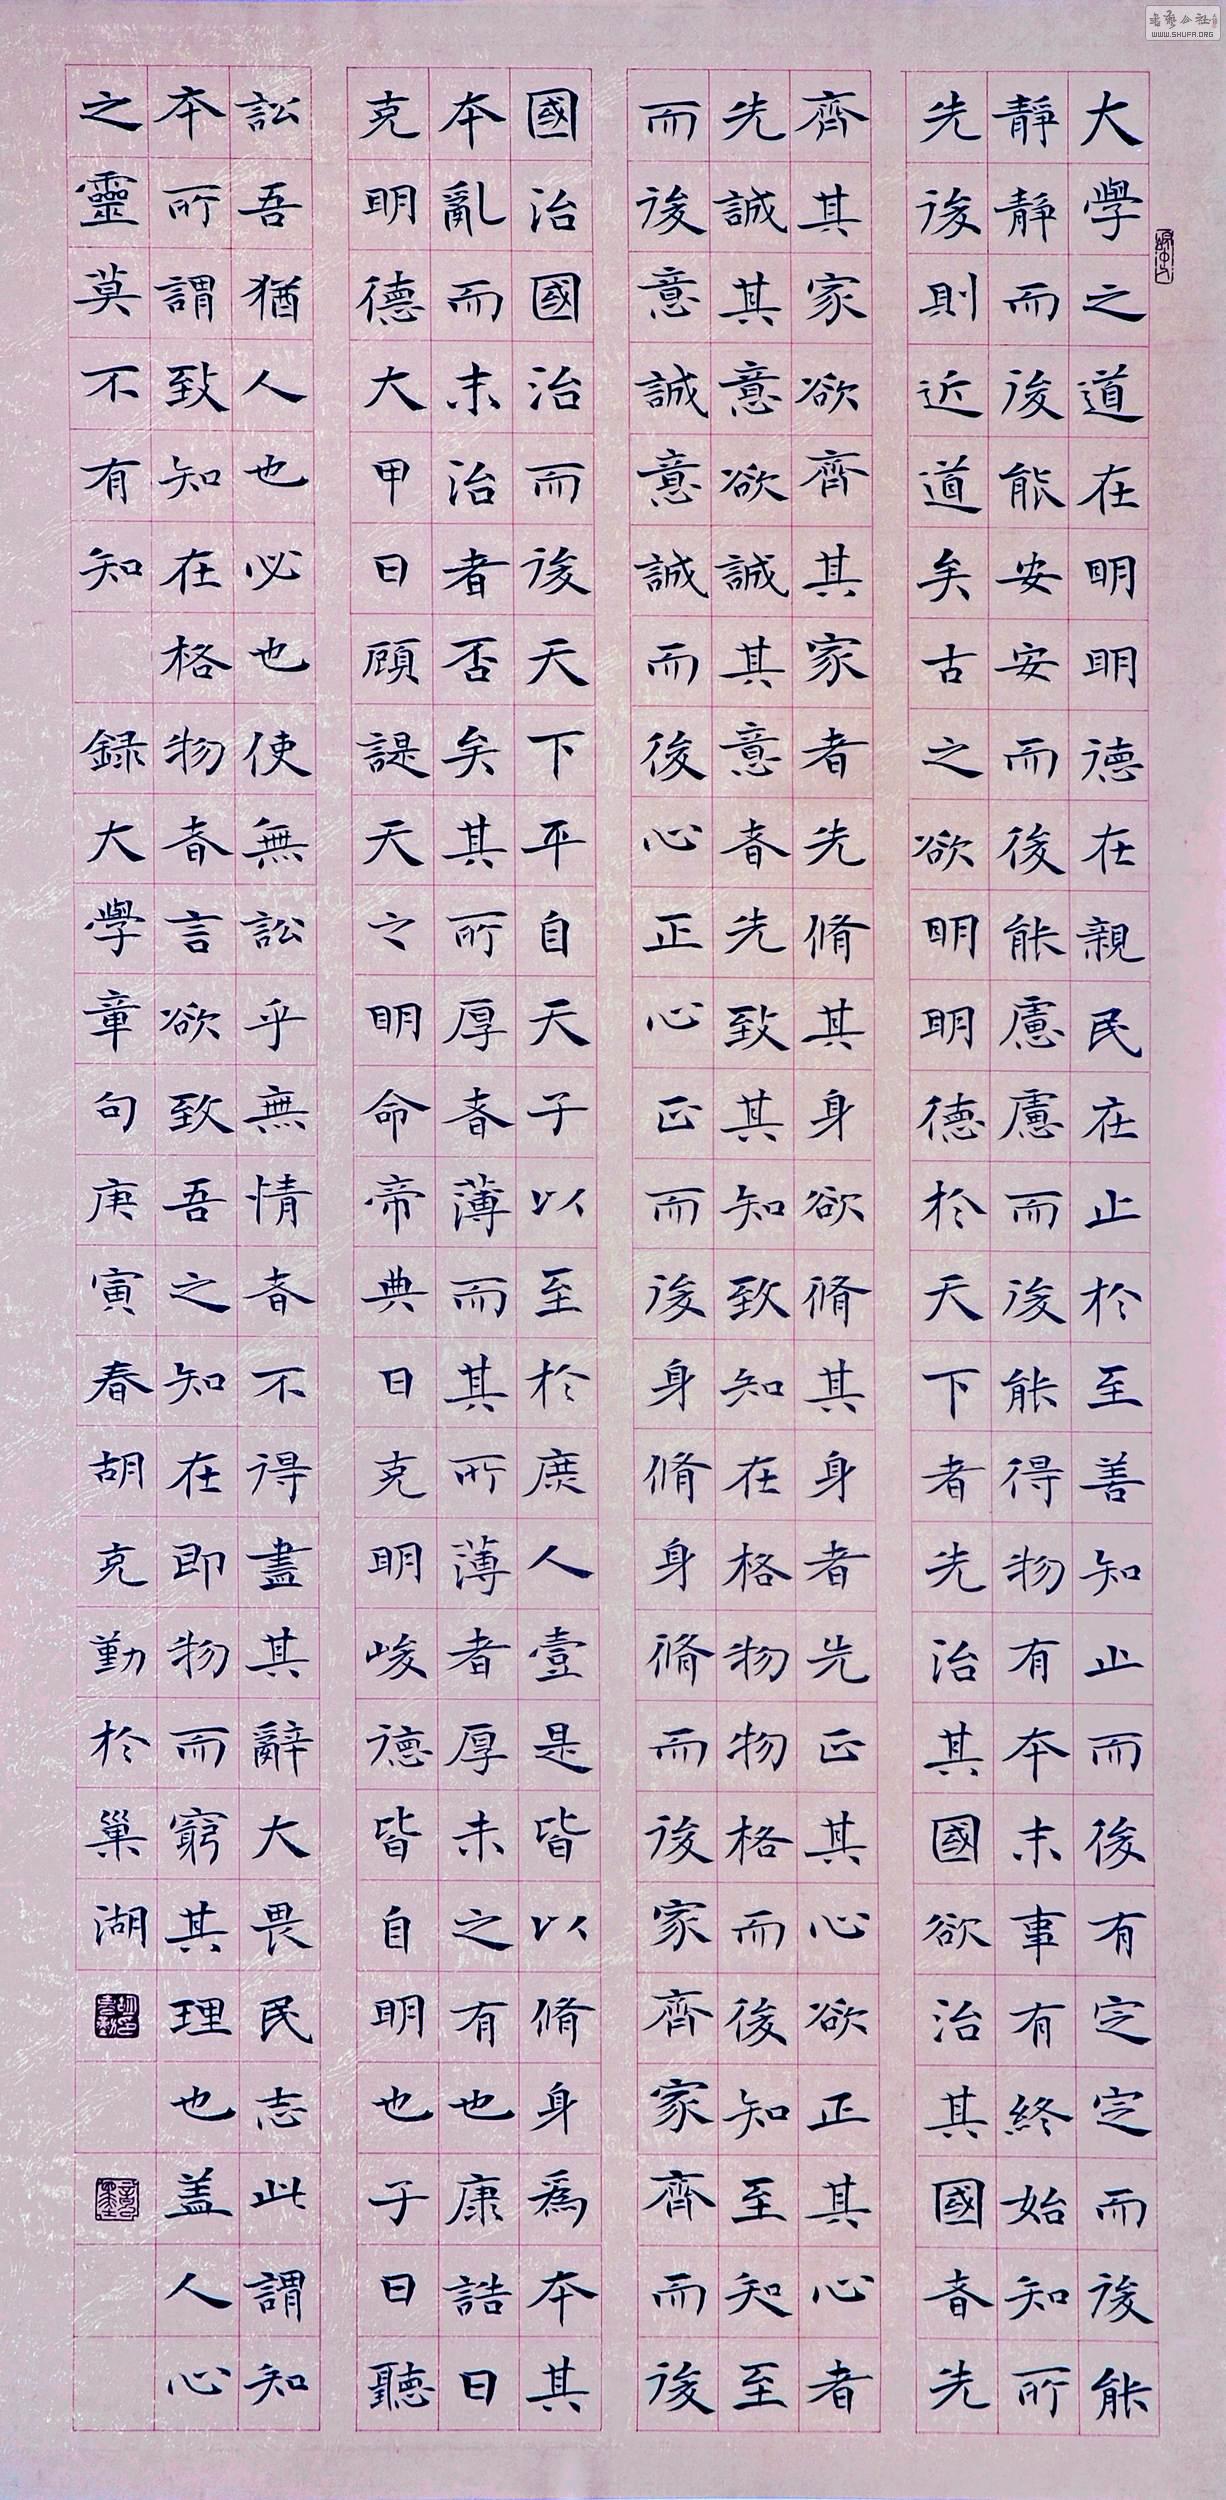 大學之道在明明德在親民在止於至善知止而後有定定而後能
靜靜而後能安安而後能慮慮而後能得物有本末事有終始知所
先後則近道矣古之欲明明德於天下者先治其國欲治其國者先
齊其家欲齊其家者先脩其身欲脩其身者先正其心欲正其心者
先誠其意欲誠其意者先致其知致知在格物物格而後知至知至
而後意誠意誠而後心正心正而後身脩身脩而後家齊家齊而後
國治國治而後天下平自天子以至於庶人壹是皆以脩身爲本其
本亂而末治者否矣其所厚者薄而其所薄者厚未之有也康誥曰
克明德大甲曰顧諟天之明命帝典曰克明峻德皆自明也子曰聽
訟吾猶人也必也使無訟乎無情者不得盡其辭大畏民志此謂知
本所謂致知在格物者言欲致吾之知在即物而窮其理也盖人心
之靈莫不有知 録大學章句庚寅春胡克勤於巢湖
WWW.SHUFA.ORG